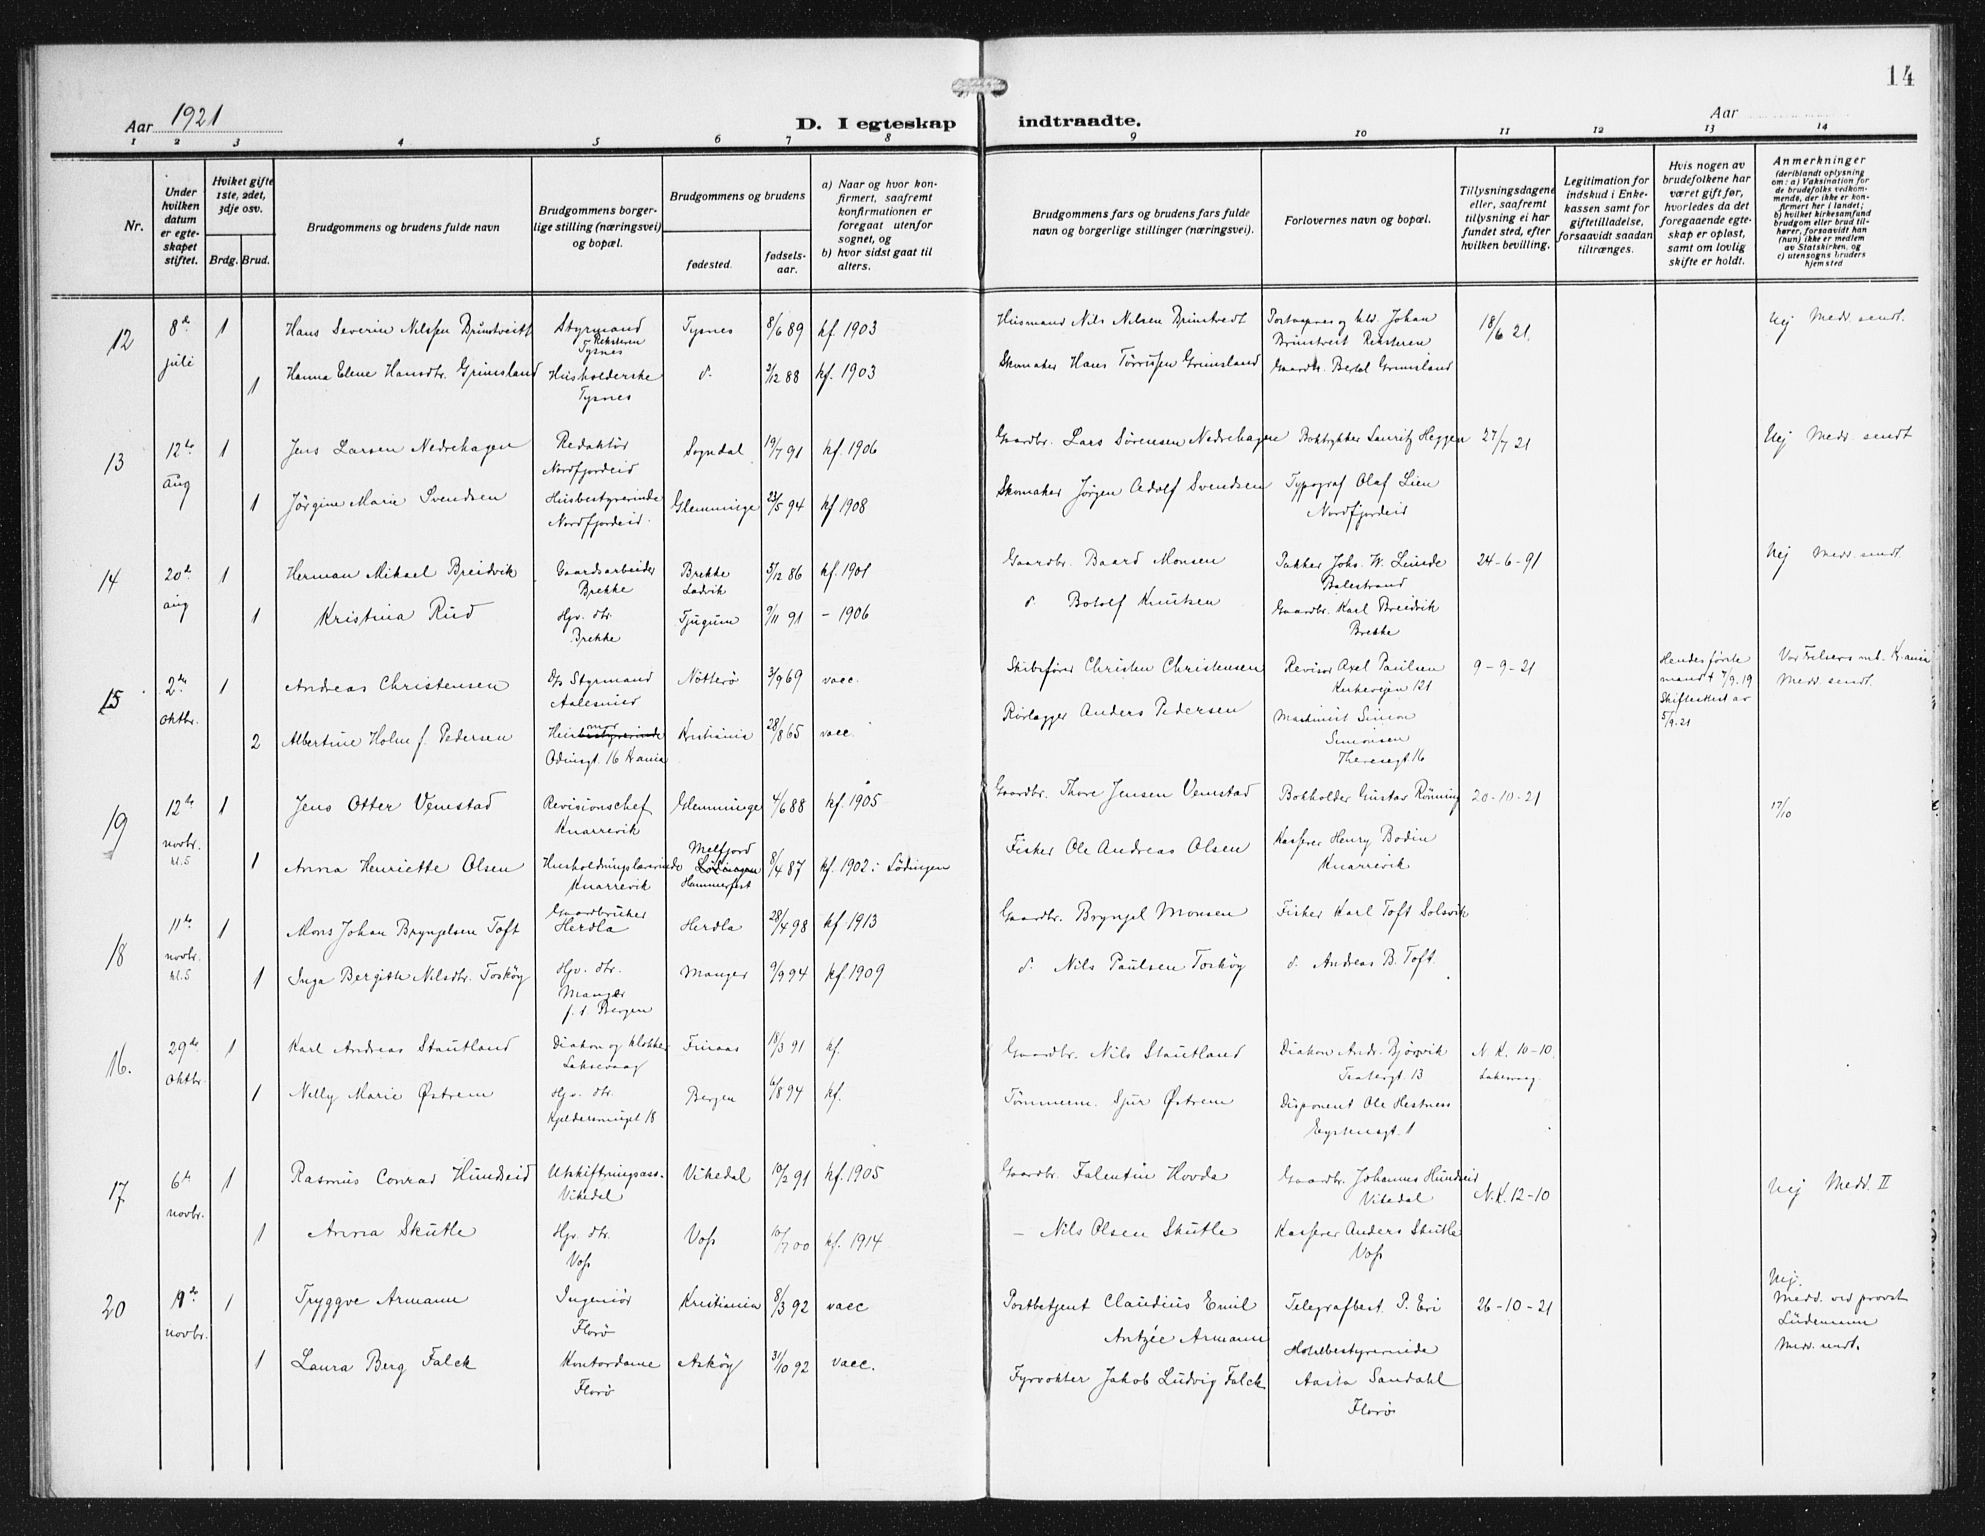 14
Aar 1921
D. I egteskap indtraadte.
Aar
1 2 3 4 5 6 7 8 9 10 11 12 13 14
Nr.
Under hvilken datum er egteskapet stiftet.
Hviket gifte 1ste, 2det, 3dje osv.
Brdg. Brud.
Brudgommens og brudens fulde navn
Brudgommens borgerlige stilling (næringsvei) og bopæl.
Brudgommens og brudens
fødested.
fødselsaar.
a) Naar og hvor konfirmert, saafremt konfirmationen er foregaat utenfor sognet, og
b) hvor sidst gaat til alters.
Brudgommens fars og brudens fars fulde navn og borgerlige stillinger (næringsvei).
Forlovernes navn og bopæl.
Tillysningsdagene eller, saafremt tillysning ei har fundet sted, efter hvilken bevilling.
Legitimation for indskud i Enkekassen samt for giftetilladelse, forsaavidt saadan tiltrænges.
Hvis nogen av brudefolkene har været gift før, hvorledes da det foregaaende egteskap er opløst, samt om lovlig skifte er holdt.
Anmerkninger
(deriblandt oplysning om: a) Vaksination for de brudefolks vedkommende, der ikke er konfirmert her i landet; b) hvilket kirkesamfund brudgom eller brud tilhører, forsaavidt han (hun) ikke er medlem av Statskirken, og c) utensogns bruders hjemsted
12 8de juli 1 Hans Severin Nilssen Brunstveitt Styrmand Reksteren Tysnes Tysnes 8/6 89 kf 1903 Husmand Nils Nilsen Brunstvedt Johan Brunstveit Reksteren 18/6 21. Nej Medd. sendt.
1 Hanna Elene Hansdtr. Grimsland Husholderske Tysnes d. 2/12 88 kf. 1903 Skomaker Hans Tørrissen Grimsland Gaardbr. Bertel Grimsland
13 12te aug 1 Jens Larsen Nedrehagen Redaktør Nordfjordeid Sogndal 19/7 91 kf. 1906 Gaardbr. Lars Sørensen Nedrehagen Boktrykker Lauritz Heggen 27/7 21 Nej Medd. sendt
1 Jørgine Marie Svendsen Husbestyrerinde Nordfjordeid. Glemminge 23/5 94 kf 1908 Skomaker Jørgen Adolf Svendsen Typograf Olaf Lien Nordfjordeid
14 20de aug 1 Herman Mikael Breidvik Gaardsarbeider Brekke Brekke Ladvik 5/12 86 kf. 1901 Gaardbr. Baard Monsen Pakker Johs. W. Linde Balestrand 24-6-91 Nej Medd. sendt
1 Kristina Rud Hjv. dtr. Brekke Tjugum 9/11 91 - 1906 d. Botolf Knutsen Gaardbr. Karl Breidvik Brekke
15 2den oktbr. 1 Andreas Christensen D/s Styrmand Aalesund Nøtterø 3/9 69 vacc. Skibsfører Christen Christensen Revisor Axel Paulsen Kirkeveien 121 9-9-21 Hendes første mand † 7/9.19 Skifteattest av 5/9.21 Vor Frelsers mt. K.ania Medd. sendt.
2 Albertine Holm f. Pedersen Husmor Odinsgt. 16 K.ania Kristiania 28/8 65 vacc. Rørlægger Anders Pedersen Maskinist Simon Simonsen Theresegt 16
19 12te novbr. kl.5 1 Jens Otter Vemstad Revisionschef Knarrevik Glemminge 4/6 88 kf. 1905 Gaardbr. Thore Jensen Vemstad Bokholder Gustav Rønning 20-10-21 17/10
1 Anna Henriette Olsen Husholdningslærerinde Knarrevik Melfjord Lødingen Hammerfest 8/4 87 kf. 1902 i Lødingen Fisker Ole Andreas Olsen Kasserer Henry Bodin Knarrevik
18 11te novbr. kl.5 1 Mons Johan Bryngelsen Toft Gaardbruker Herdla Herdla 28/4 98 kf 1913 Gaardbr. Bryngel Monsen Fisker Karl Toft Solsvik
1 Inga Bergith Nilsdtr. Toskøy Hjv. dtr. Manger f. t. Bergen Manger 9/9 94 kf. 1909 d. Nils Paulsen Toskøy d. Andreas B. Toft.
16. 29de oktbr. 1 Karl Andreas Stautland Diakon og klokker Laksevaag Finaas 18/3 91 kf. Gaardbr. Nils Stautland Diakon Andr. Bjørvik Teatergt 13 N.K. 10-10. Laksevaag.
1 Nelly Marie Østrem Hjv. dtr. Kjeldersmuget 18 Bergen 6/8 94 kf. Tømmerm. Sjur Østrem Disponent Ole Hestness Eystensgt. 1
17 6te novbr. 1 Rasmus Conrad Hundseid Utskiftningsass. Vikedal Vikedal 10/2 91 kf. 1905 Gaardbr. Falentin Hovda Gaardbr. Johannes Hundseid Vikedal N.K. 12-10 Nej Medd. II
1 Anna Skutle Hjv. dtr. Voss Voss 10/7 00 kf. 1914 - Nils Olsen Skutle Kasserer Anders Skutle Voss
20 novbr. 1 Tryggve Armann Ingeniør Florø Kristiania 8/3 92 vacc Postbetjent Claudius Emil Antzée Armann Telegrafbest. P. Eri 26-10-21 Nej. Medd. ved provst Lüdemann Medd. sendt.
1 Laura Berg Falck Kontordame Florø Askøy 31/10 92 vacc. Fyrvokter Jakob Ludvig Falck Hotelbestyrerinde Aasta Sandahl Florø